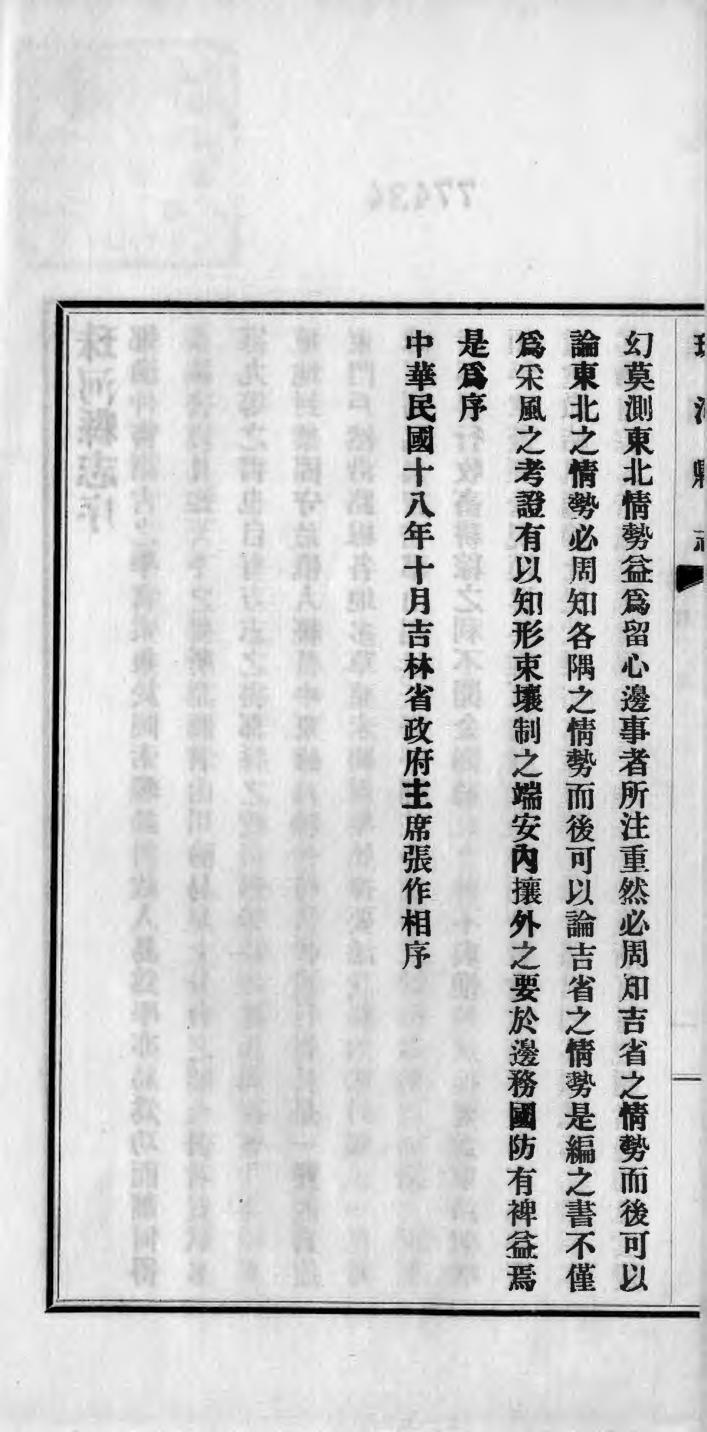 珠河縣志
幻莫測東北情勢益爲留心邊事者所注重然必周知吉省之情勢而後可以
論東北之情勢必周知各隅之情勢而後可以論吉省之情勢是編之書不僅
爲采風之考證有以知形束壤制之端安內攘外之要於邊務國防有裨益焉
是爲序
中華民國十八年十月吉林省政府主席張作相序